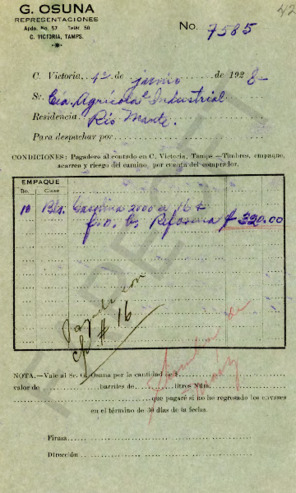 42
G. OSUNA
REPRESENTACIONES
Apdo. No. 57 Teléf. 56
C. VICTORIA, TAMPS.
No. 7585
C. Victoria, 42 de junio de 1928
Sr. Cía. Agrícola Industrial
Residencia, Río Mante.
Para despachar por
CONDICIONES: Pagadero al contado en C. Victoria, Tamps.—Timbre, empaque,
acarreo y riesgo del camino, por cuenta del comprador.
EMPAQUE
No. Clase
10 Bls. Gasolina 2000 a 16
$ 320.00
Pagado con
ch # 16
NOTA.—Vale al Sr. G. Osuna por la cantidad de $
valor de barriles de litros Núm.
que pagaré si no he regresado los envases
en el término de 30 días de la fecha.
Firma
Dirección